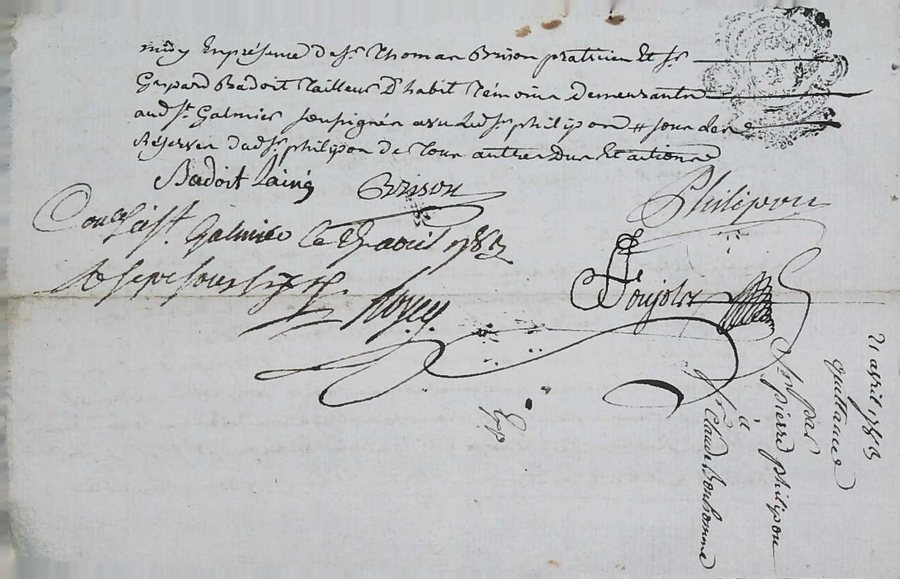 midy En présence de sr. Thomas Brison praticien Et sr.
Gaspard Badoit Tailleur D'habit Témoins Demeurants
aud. st. Galmier soussignés avec led. sr. philipon # sous les
Réserves dud. sr. philipon de Tous autres Dus Et actions
Badoit Lainé Brison Philipon
st. Galmier Le avril 1783
sept sous
Poujol
21 avril 1783
quittance
par
sr. pierre philipon
à
sr. Claude Bonhomme